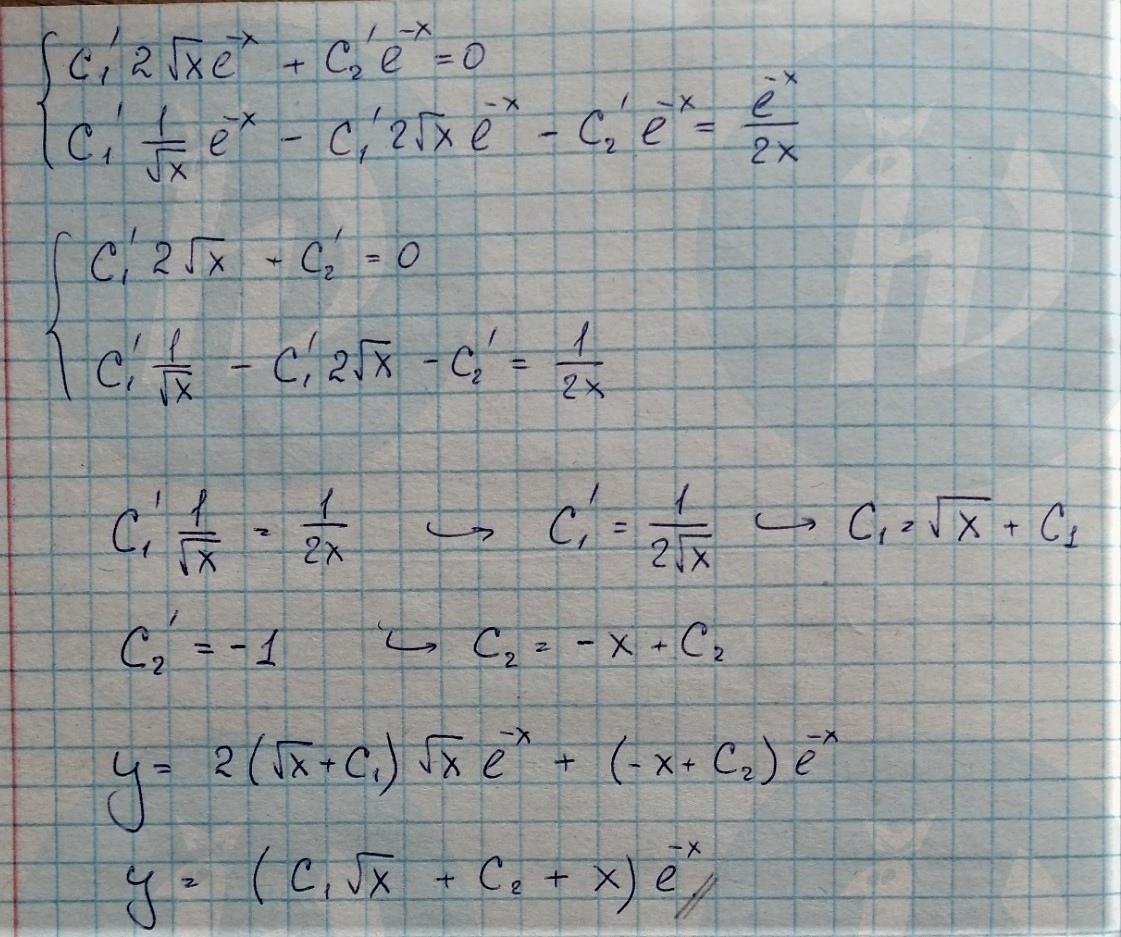 C₁' 2√x e⁻ˣ + C₂' e⁻ˣ = 0
C₁' 1/√x e⁻ˣ - C₁' 2√x e⁻ˣ - C₂' e⁻ˣ = e⁻ˣ/2x
C₁' 2√x + C₂' = 0
C₁' 1/√x - C₁' 2√x - C₂' = 1/2x
C₁' 1/√x = 1/2x ↪ C₁' = 1/2√x ↪ C₁ = √x + C₁
C₂' = -1 ↪ C₂ = -x + C₂
y = 2(√x + C₁) √x e⁻ˣ + (-x + C₂) e⁻ˣ
y = (C₁ √x + C₂ + x) e⁻ˣ //